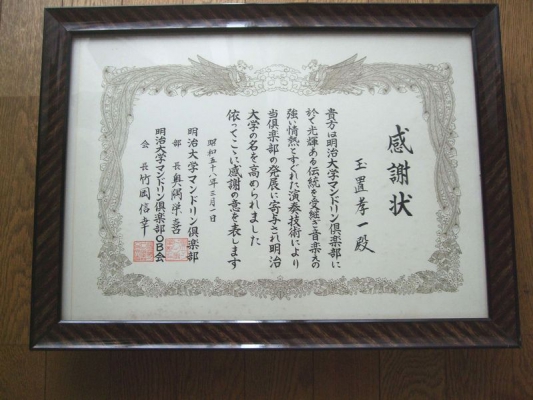 感謝状
玉置孝一殿
貴方は明治大学マンドリン倶楽部に
於て光輝ある伝統を受継ぎ音楽えの
強い情熱とすぐれた演奏技術により
当倶楽部の発展に寄与され明治
大学の名を高められました
依ってここに感謝の意を表します
昭和五十八年三月一日
明治大学マンドリン倶楽部
部長奥隅栄喜
明治大学マンドリン倶楽部OB会
会長竹岡信幸